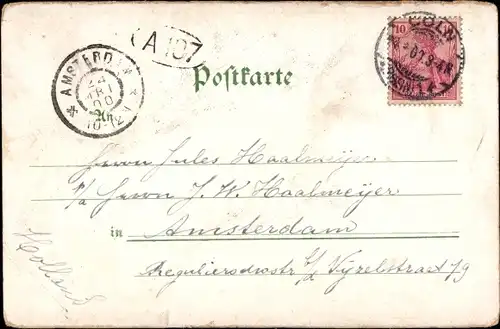 A 107
AMSTERDAM
24
00
10-12V
10
CÖLN
Postkarte
An
Herrn Jules Haalmeijer
p/a Herrn J. W. Haalmeijer
in Amsterdam
Reguliersdwstr b/d Vijzelstraat 79
Holland